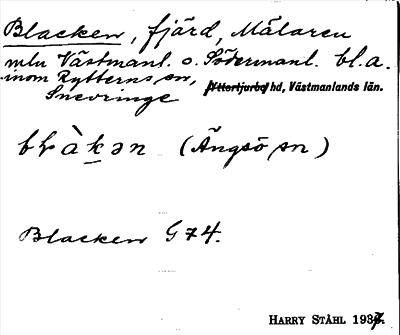 Blacken, fjärd, Mälaren
mlu Västmanl. o. Södermanl. bl.a.
inom Rytterns sn,
Snevringe ~~Yttertjurbo~~ hd, Västmanlands län.
blàkən (Ängsö sn)
Blacken G74.
HARRY STÅHL 1937.